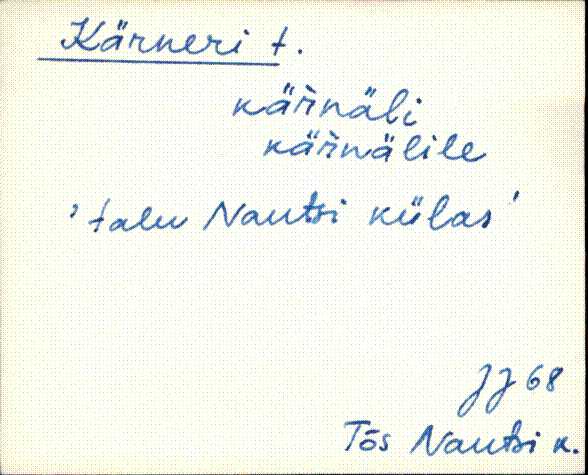 Kärneri t.
kär̀näli
kär̀nälile
'talu Nautsi külas'
JJ 68
Tõs Nautsi k.